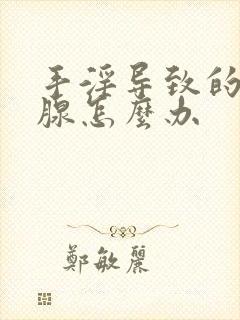 手淫导致的
腺怎麼办
鄭敏麗